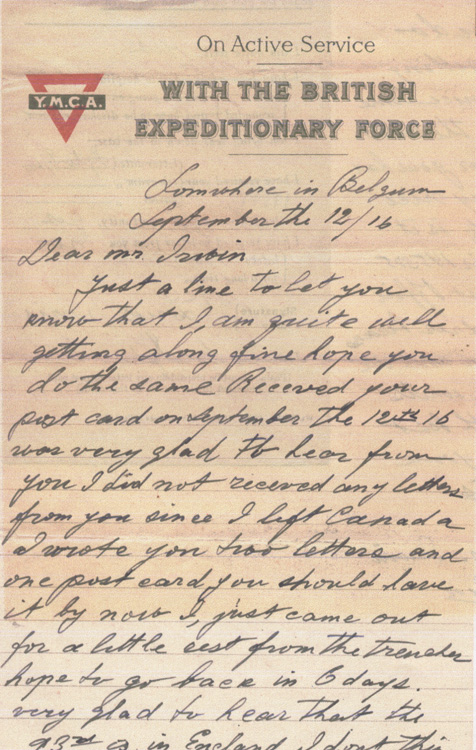 On Active Service
WITH THE BRITISH
Y.M.C.A.
EXPEDITIONARY FORCE
Somwhere in Belgum
September the 12/16
Dear mr. Irwin
Just a line to let you
know that I, am quite well
getting along fine hope you
do the same Receved your
post card on September the 12th 16
was very glad to hear from
you I did not receved any letters
from you since I left Canada
I wrote you two letters and
one post card you should have
it by now I, just came out
for a little rest from the trenches
hope to go back in 6 days.
very glad to hear that the
93rd in England I dont